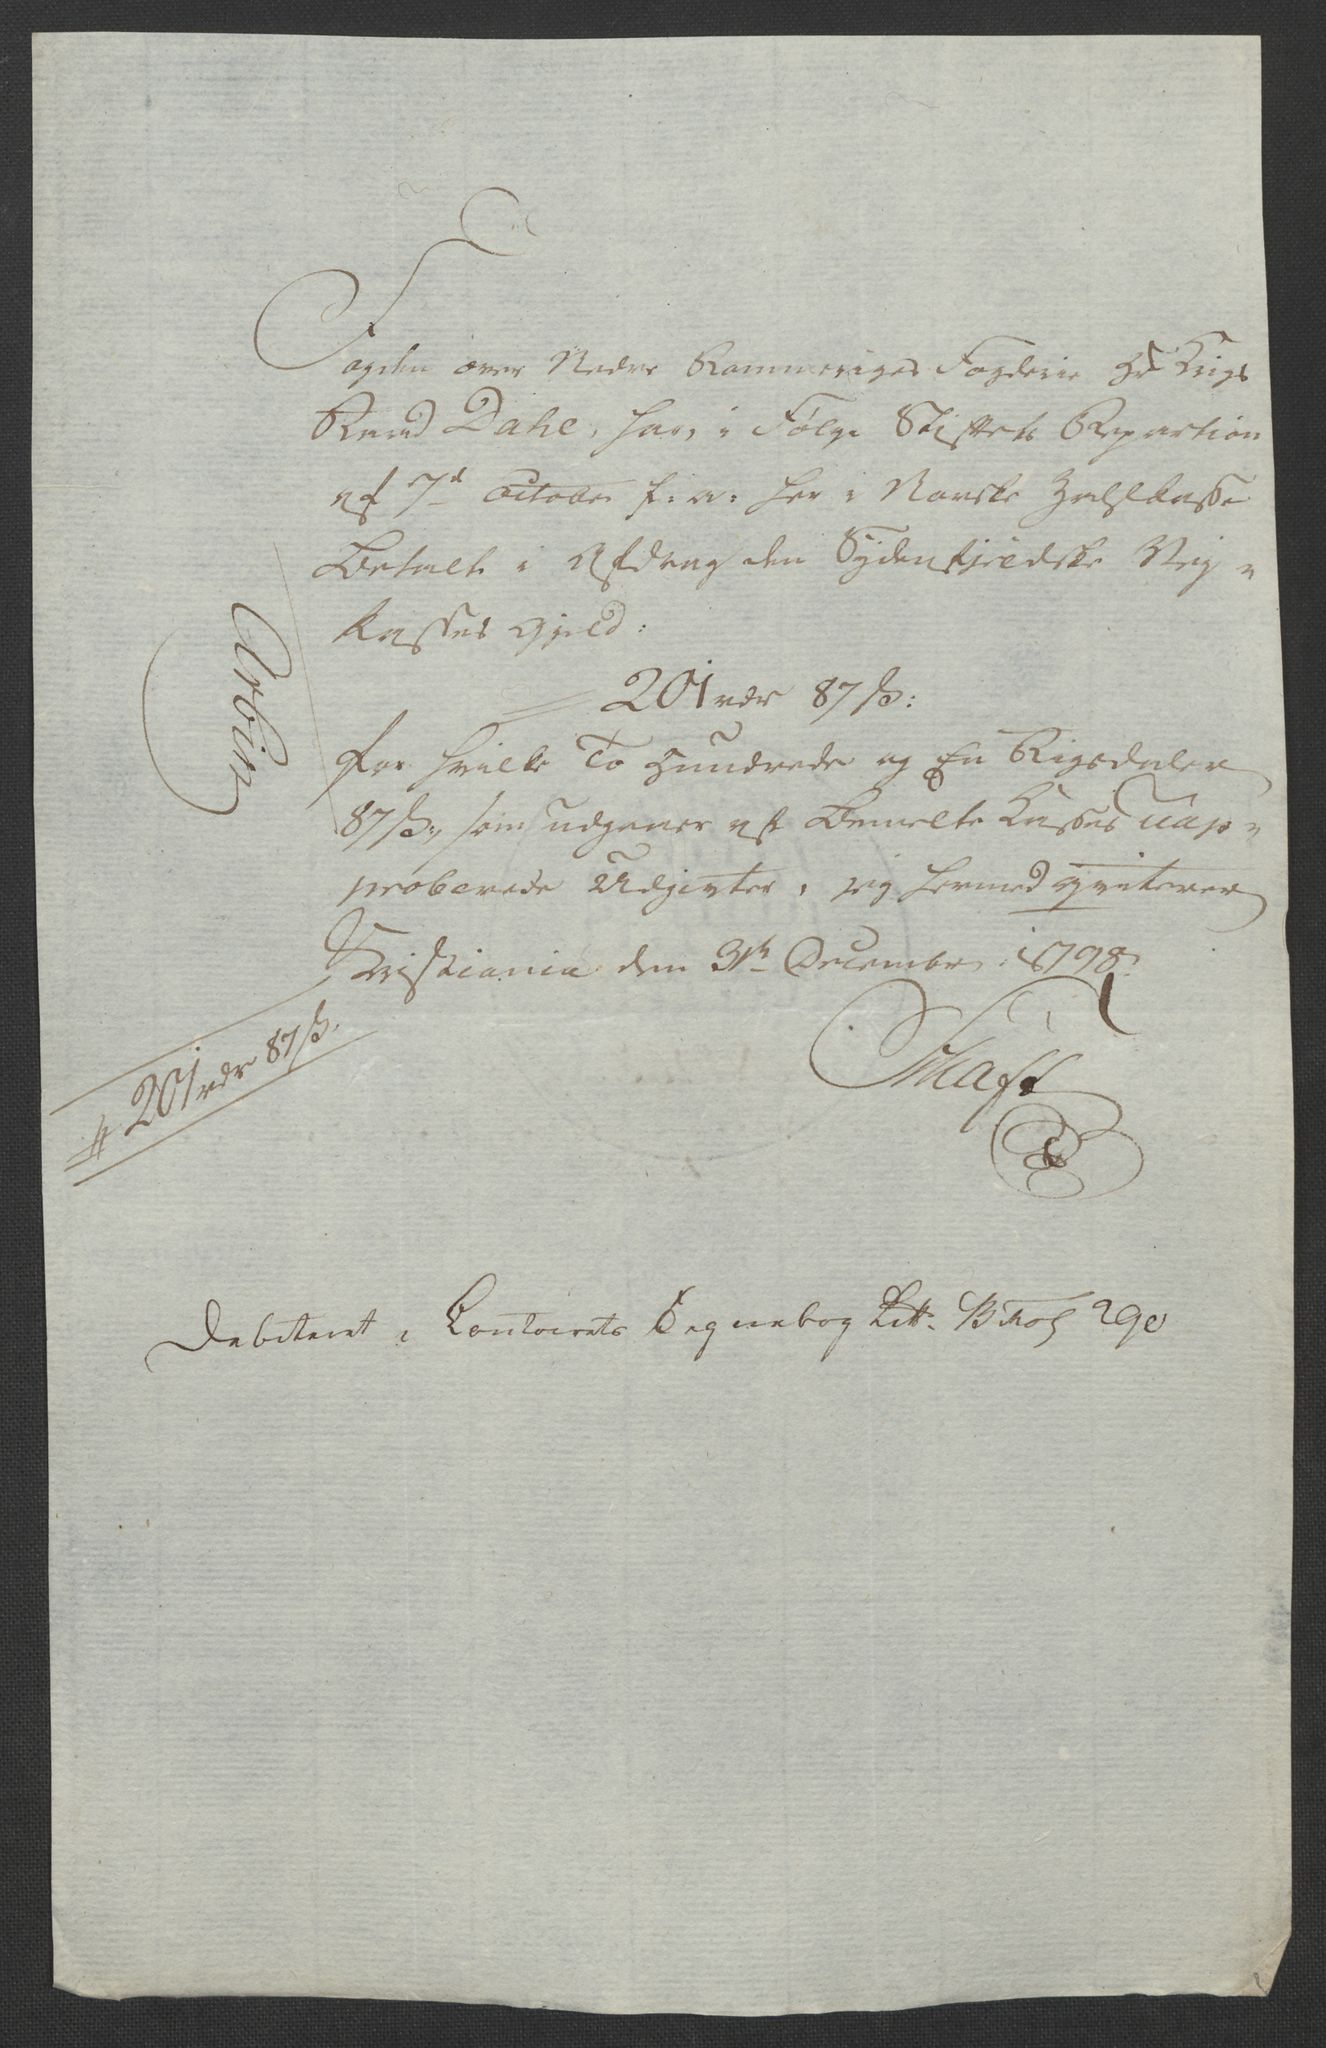 Fogden over Nedre Rommeriges Fogderie Hr Krigs
Raad Dahl, har, i Følge Stiftets Repartion
af 7d October f: a: her i Norske Zahlkasse
Betalt i Afdrag den Sydenfieldske Vej-
kasses Gjeld:
201 rdr 87 ß:
for hvilke To Hundrede og En Rigsdaler
87 ß:, som udgiøer af Bemelte Kasses uap-
proberede Udgivter, jeg hermed qviterer
Christiania den 31te December 1798.
Arbin
201 rdr 87 ß.
Debiteret i Contoirets Regnebog Litt. B Fol 290